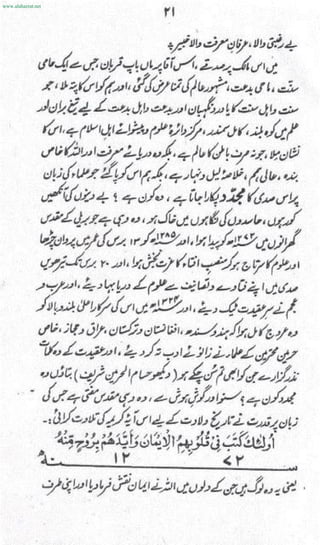 www.alahazrat.net
۲۱
بے رغبتی والا، عرفان معرفت والا خبیر پر
میں اس مالک پر صدقے، اُس آقا پر ماں باپ قربان جس سے ایک حامی
سنّت، ماحیٔ بدعت، مشہورِ عالم کی تمنّا عرض کی گئی، اور ہم کو اس کا پتہ ملا، جو
سنت واہلِ سنت کا یاور ونگہبان اور بدعت واہلِ بدعت کے لیے تیغِ بران اور
علم میں کوہِ بلند، کامل سمندر، مرکزِ دائرۂ علوم وپیشوائے اہلِ اسلام ہے، اس کا
نشان ملا، جو نہ صرف باطن کا عالم ہے، بلکہ وہ دریائے معرفت اور اللہ کا خاص
بندہ، حالی مجمم، خلاصۂ لیل ونہار ہے، بلکہ ہم اس کو پا گئے جو علماء کی زبان
پر اس صدی کا مجدّد پکارا جاتا ہے، وہ کون ہے ؟ بے دینوں کی آنکھیں
کور ہوں، حاسدوں کی نگاہوں میں خاک ہو، وہ وہی ہے جو بریلی کے مقدس
گھرانوں میں ۱۲۷۲ھ کو پیدا ہوا، اور ۱۲۸۵ھ کو ۱۳ برس کی عمر میں پروان چڑھا
اور علوم کا سرتاج ہو کر منصبِ افتاء کا عزت بخش ہوا، اور ۲۰ برس تک تیرھویں
صدی میں اپنے فتاوے وتصانیف سے علوم کے دریا بہا دیئے، اور عرب و
عجم نے سرِ عقیدت ٹیک دیئے، اور ۱۳۲۴ھ میں اس کی سرکارِ اعلیٰ بلند وبالا کو
وہ عروجِ کامل ہوا کہ ہندوسندھ، افغانستان وترکستان، عراق وحجاز، خاص
حرمین محترمین کے علماء نے زانوئے ادب تہ کر دیئے، اور عقیدت کے وہ کلمات
نذر گزارے جن کو ابھی تم سُن چکے ہو (دیکھو حسام الحرمین شریف) بتاؤں وہ
مجدد کون ہے ؟ سنو اور گوشِ ہوش سے، وہ وہی مقدس مفتی ہے جس کی
زبان پر قدرت نے تاریخِ ولادت کے لیے اس آیۂ کریمہ کی تلاوت کرائی:۔
اُولٰٓئِكَ كَتَبَ فِيْ قُلُوْبِهِمُ الْاِيْمَانَ وَاَيَّدَهُمْ بِرُوْحٍ مِّنْهُ
۱۲ ۷۲
یعنی یہ وہ لوگ ہیں جن کے دلوں میں اللہ نے ایمان نقش فرما دیا اور اپنی طرف